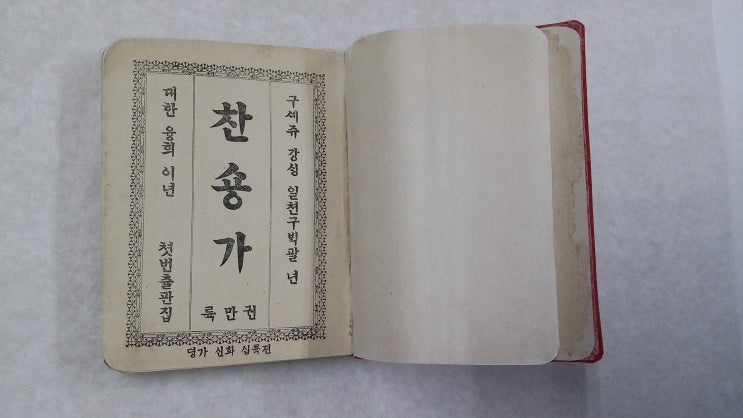 구세쥬 강싱 일쳔구빅팔 년
찬숑가
륙만권
대한 융희 이년 첫번출판집
뎡가 신화 십륙젼